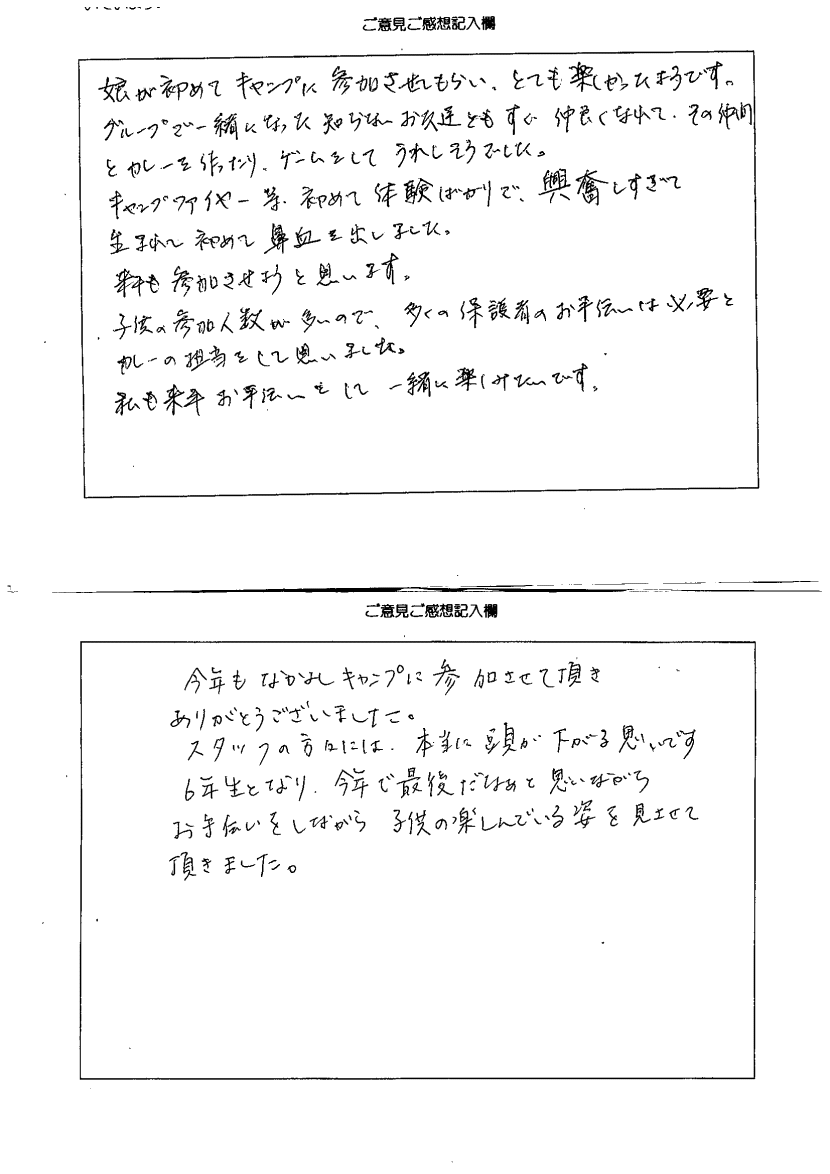 ご意見ご感想記入欄
娘が初めてキャンプに参加させてもらい、とても楽しかったようです。
グループで一緒になった知らないお友達ともすぐ仲良くなれて、その仲間
とカレーを作ったり、ゲームをしてうれしそうでした。
キャンプファイヤー等、初めて体験ばかりで、興奮しすぎて
生まれて初めて鼻血を出しました。
来年も参加させようと思います。
子供の参加人数が多いので、多くの保護者のお手伝いは必要と
カレーの担当をして思いました。
私も来年お手伝いをして一緒に楽しみたいです。
ご意見ご感想記入欄
今年もなかよしキャンプに参加させて頂き
ありがとうございました。
スタッフの方々には、本当に頭が下がる思いです
6年生となり、今年で最後だなぁと思いながら
お手伝いをしながら子供の楽しんでいる姿を見させて
頂きました。